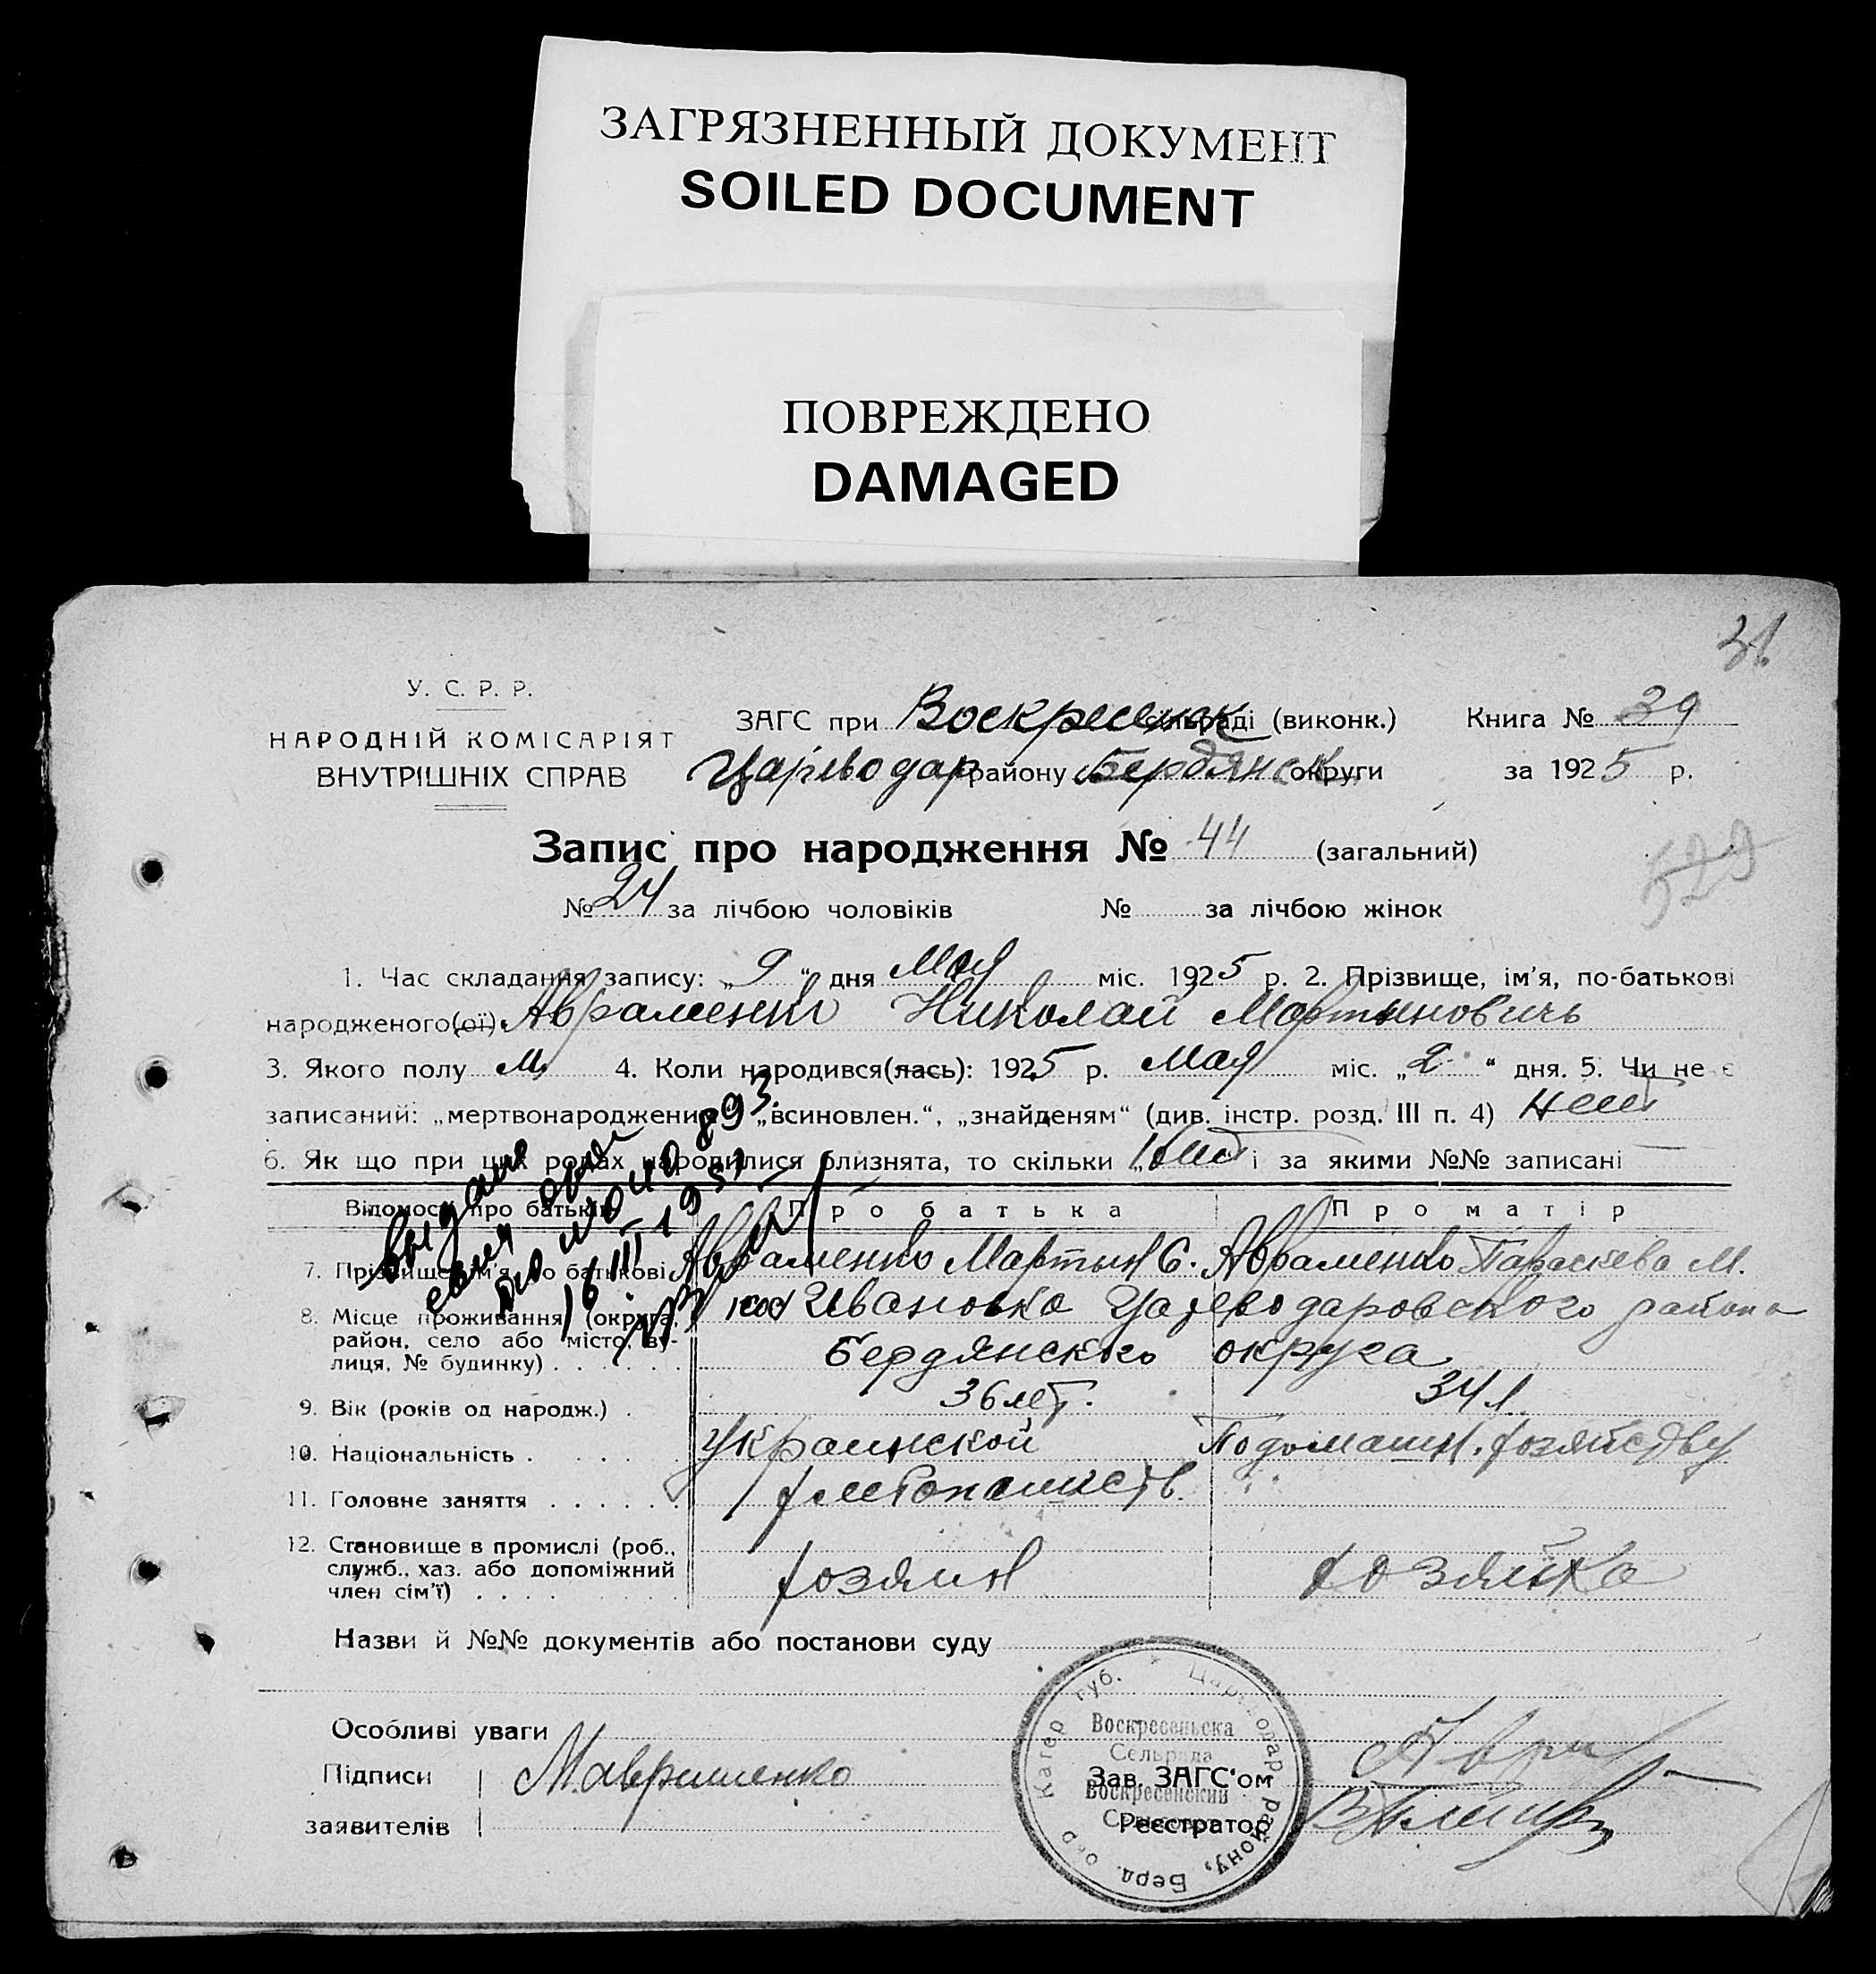 ЗАГРЯЗНЕННЫЙ ДОКУМЕНТ
SOILED DOCUMENT
ПОВРЕЖДЕНО
DAMAGED
31.
У. С. Р. Р.
НАРОДНІЙ КОМІСАРІЯТ
ВНУТРІШНІХ СПРАВ
ЗАГС при Воскресенск сільраді (виконк.) Книга № 39
Цареводар району Бердянск округи за 1925 р.
Запис про народження № 44 (загальний)
529
№ 24 за лічбою чоловіків № за лічбою жінок
1. Час складання запису: „9“ дня Мая міс. 1925 р. 2. Прізвище, ім'я, по-батькові
народженого(ої) Авраменко Николай Мартынович
3. Якого полу М 4. Коли народився(лась): 1925 р. Мая міс. „2“ дня. 5. Чи не є
записаний: „мертвонароджений“, „всиновлен.“, „знайденям“ (див. інстр. розд. III п. 4) нет
6. Як що при цих родах народилися близнята, то скільки „ і за якими №№ записані
Відомості про батьків Про батька Про матір
7. Прізвище, ім'я по батькові Авраменко Мартын С. Авраменко Параскева М.
8. Місце проживання (округа, район, село або місто, вулиця, № будинку) Ивановка Цареводаровского района
Бердянского округа
9. Вік (років од народж.) 36 лет. 34 л.
10. Національність Украинской По домашн. хозяйству
11. Головне заняття хлебопашеств.
12. Становище в промислі (роб., служб., хаз. або допоміжний член сім'ї) хозяин хозяйка
выдано
16 III 1951
Назви й №№ документів або постанови суду
Особливі уваги
Підписи заявителів М. Авраменко
Зав. ЗАГС'ом
Реєстратор
Катер губ. Царводар району, Берд. окр
Воскресеньска
Сельрада
Воскресенский